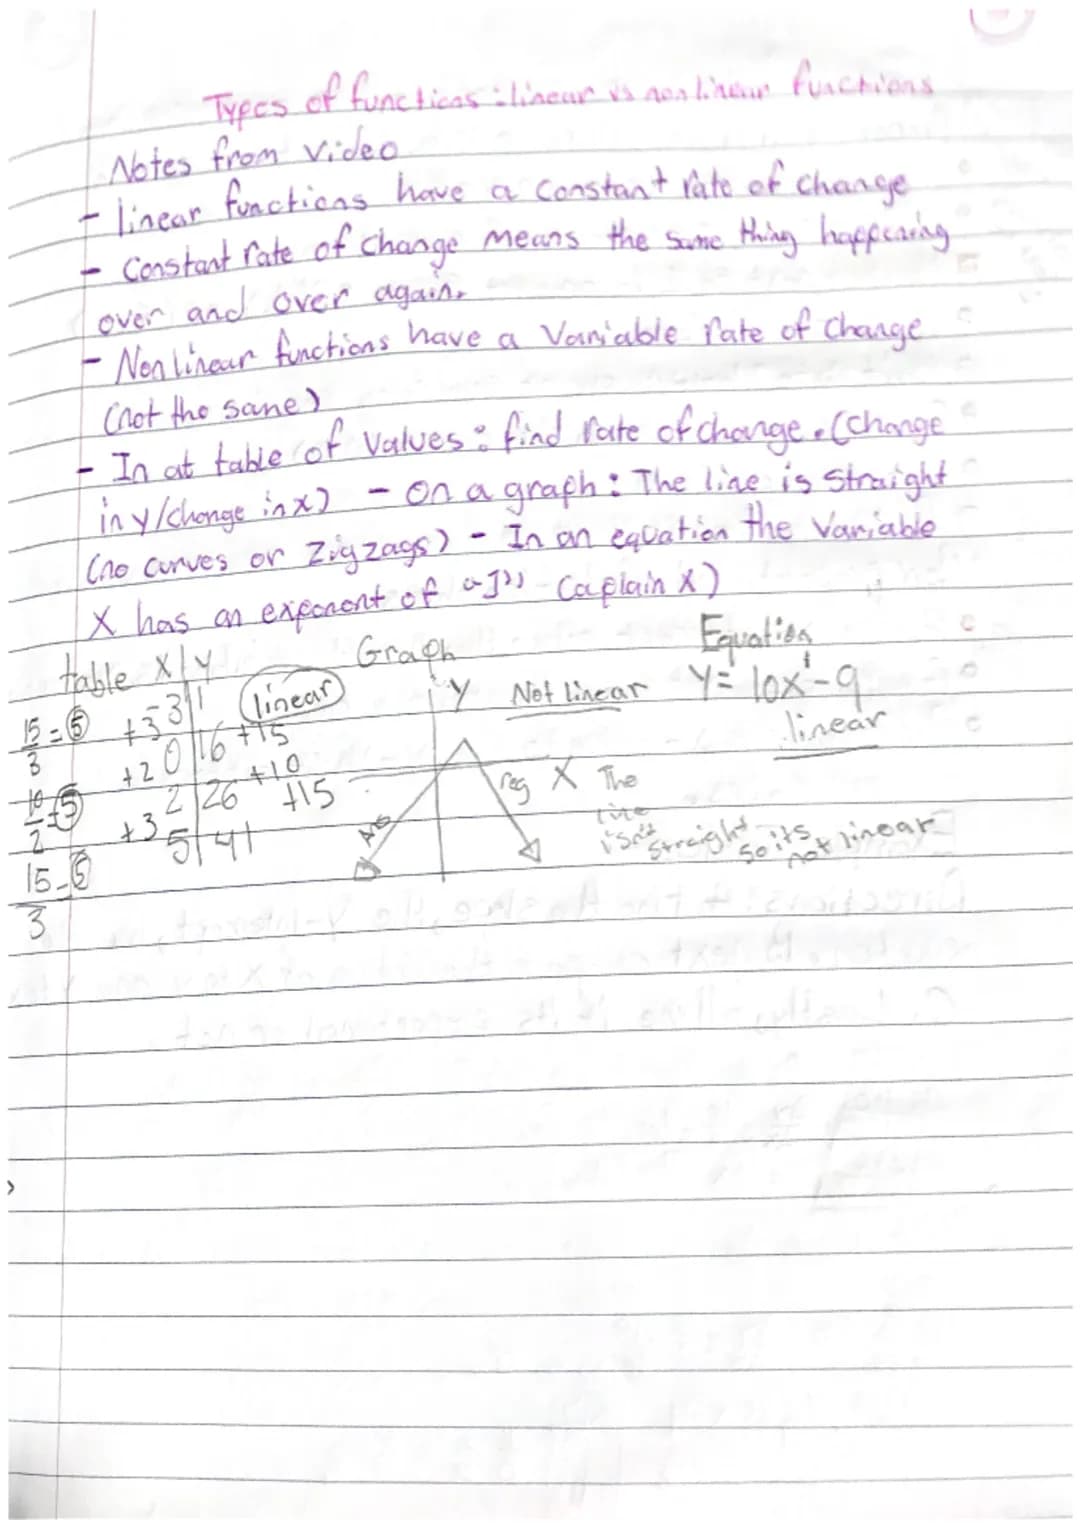 Types of functions : linear vs non linear functions
Notes from video
- linear functions have a constant rate of change
- Constant rate of change means the same thing happening
over and over again.
- Non linear functions have a Variable rate of change
(not the same)
- In at table of values : find rate of change. (change
in y/change in x) - on a graph : The line is straight
(no curves or zigzags) - In an equation the variable
X has an exponent of "1" (aplain X)
table X | Y
-3 | 1
0 | 16
2 | 26
5 | 41
+3 +2 +3
+15 +10 +15
15/3 = 5
10/2 = 5
15/3 = 5
linear
Graph
Y
Not linear
reg X The
line
isn't
straight
so its
not linear
Equation
Y = 10x¹ - 9
linear